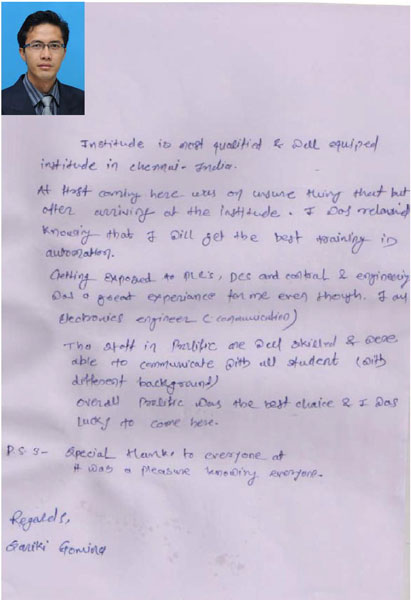 Institude is most qualified & well equiped
institude in chennai- India.
At first coming here was an unsure thing that but
after arriving at the institude. I was relaxed
knowing that I will get the best training in
automation.
Getting exposed to PLC's, DCS and control & engineering
was a great experiance for me even though. I am
Electronics engineer (communication)
The staff in Prolific are well skilled & were
able to communicate with all student (with
different background)
overall Prolific was the best choice & I was
lucky to come here.
P.S:- Special thanks to everyone at
it was a pleasure knowing everyone.
Regards,